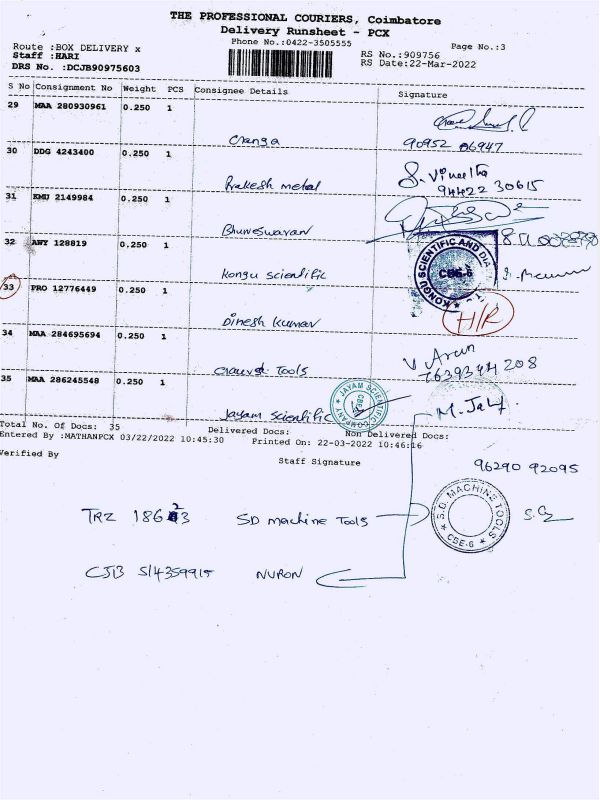 THE PROFESSIONAL COURIERS, Coimbatore
Delivery Runsheet - PCX
Phone No.:0422-3505555
Page No.:3
Route :BOX DELIVERY x
RS No.:909756
Staff :HARI
RS Date:22-Mar-2022
DRS No. :DCJB90975603
S No Consignment No Weight PCS Consignee Details Signature
29 MAA 280930961 0.250 1
90952 06947
30 DDG 4243400 0.250 1
Rakesh metal S. Vineetha
94422 30615
31 KMU 2149984 0.250 1
Bhuveswaran
32 ANY 128819 0.250 1
Kongu scientific
KONGU SCIENTIFIC AND
CBE-6
33 PRO 12776449 0.250 1
Dinesh kumar H/R
34 MAA 284695694 0.250 1
Tools V Arun
35 MAA 286245548 0.250 1
Jayam scientific
JAYAM SCIENTIFIC COMPANY
Total No. Of Docs: 35 Delivered Docs: Non Delivered Docs:
Entered By :MATHANPCX 03/22/2022 10:45:30 Printed On: 22-03-2022 10:46:16
Verified By
Staff Signature
96290 92095
TRZ SD machine Tools
S.D. MACHINE TOOLS
CBE-6
CJB NURON